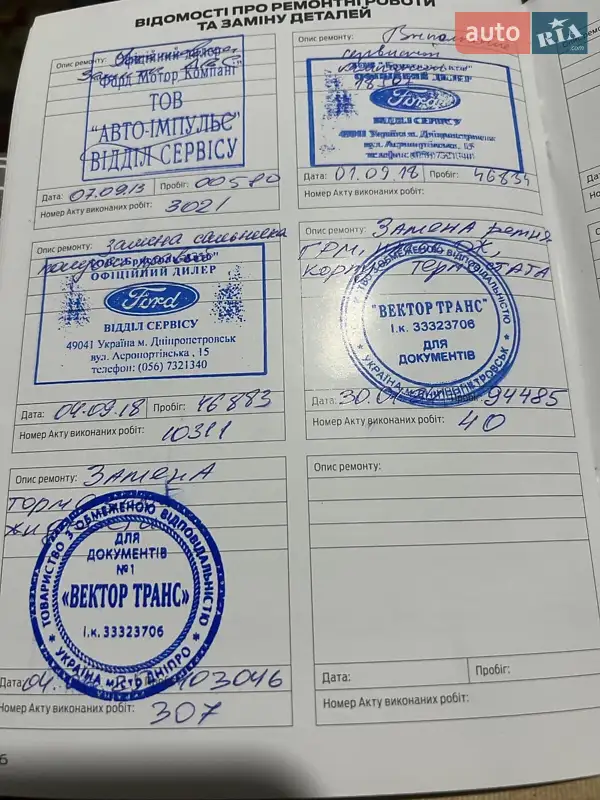 ВІДОМОСТІ ПРО РЕМОНТНІ РОБОТИ
ТА ЗАМІНУ ДЕТАЛЕЙ
auto RIA .com
Опис ремонту:
Офіційний дилер
Форд Мотор Компані
ТОВ
"АВТО-ІМПУЛЬС"
ВІДДІЛ СЕРВІСУ
Дата: 07.09.13 Пробіг: 00580
Номер Акту виконаних робіт: 3021
Опис ремонту:
ОФІЦІЙНИЙ ДИЛЕР
Ford
ВІДДІЛ СЕРВІСУ
49041 Україна м. Дніпропетровськ
вул. Аеропортівська, 15
телефон: (056) 7321340
Дата: 01.09.18 Пробіг: 46834
Номер Акту виконаних робіт:
Опис ремонту: замена сальника
ОФІЦІЙНИЙ ДИЛЕР
Ford
ВІДДІЛ СЕРВІСУ
49041 Україна м. Дніпропетровськ
вул. Аеропортівська , 15
телефон: (056) 7321340
Дата: 04.09.18 Пробіг: 46883
Номер Акту виконаних робіт: 10311
Опис ремонту: Замена ремня
ГРМ,
ТЕРМОСТАТА
"ВЕКТОР ТРАНС"
І.к. 33323706
ДЛЯ
ДОКУМЕНТІВ
Дата: 30.0 94485
Номер Акту виконаних робіт: 40
Опис ремонту: Замена
ТОВАРИСТВО З ОБМЕЖЕНОЮ ВІДПОВІДАЛЬНІСТЮ
ДЛЯ
ДОКУМЕНТІВ
№1
«ВЕКТОР ТРАНС»
І.к. 33323706
УКРАЇНА місто ДНІПРО
Дата: 04. 103046
Номер Акту виконаних робіт: 307
Опис ремонту:
Дата: Пробіг:
Номер Акту виконаних робіт:
6